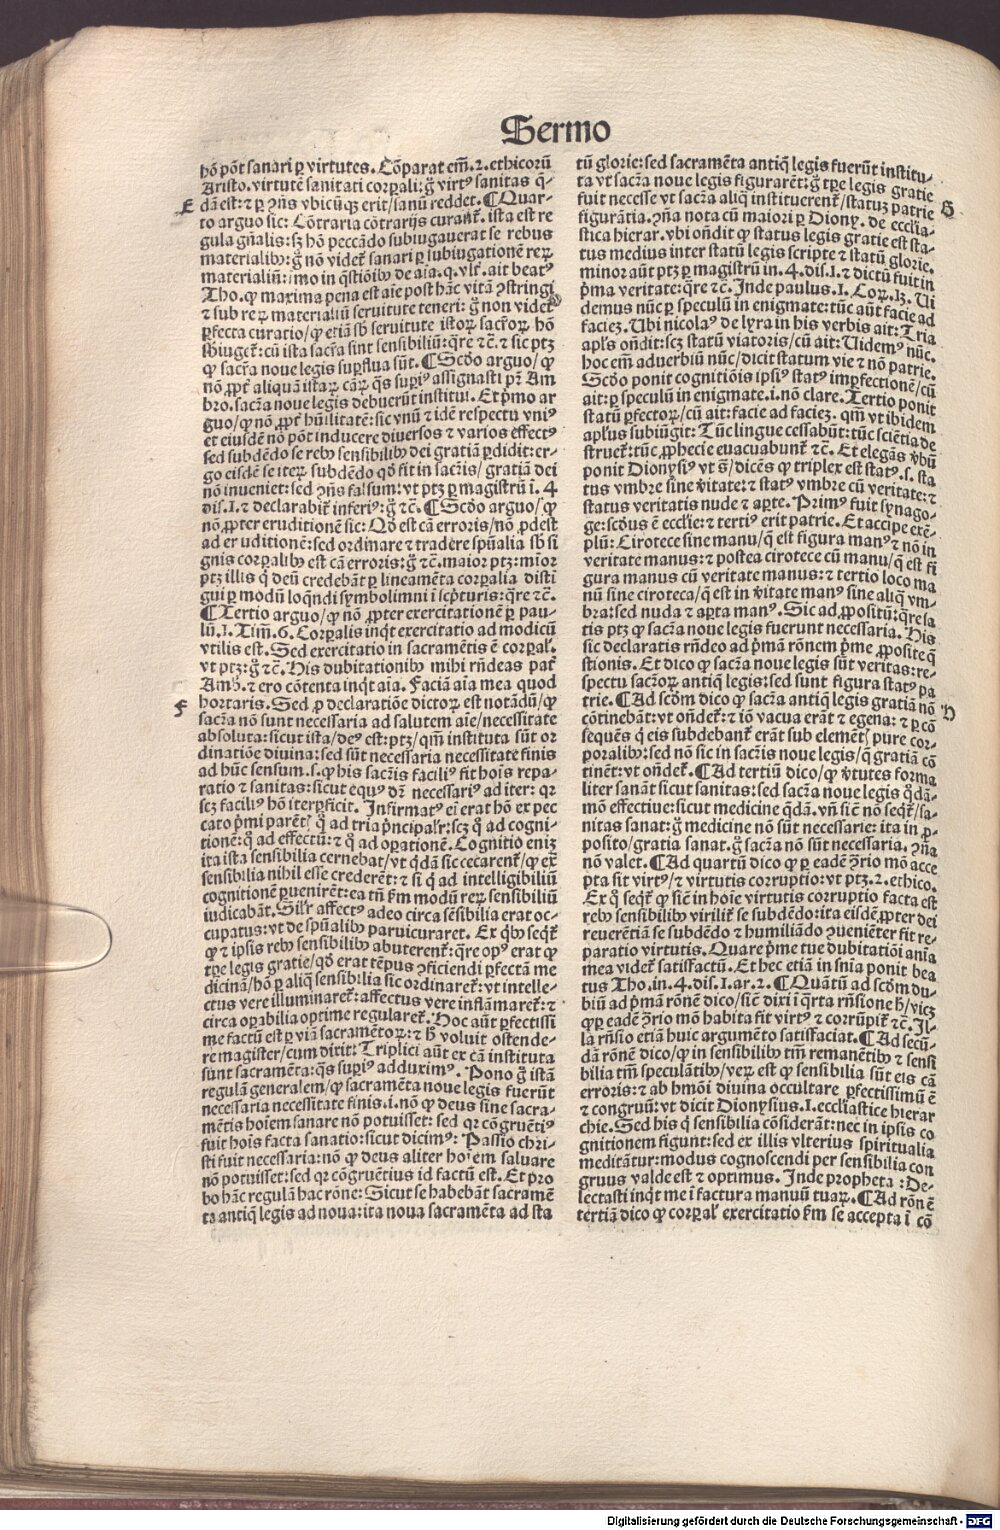 Sermo
hō pōt sanari ꝑ virtutes. Cōparat em̄.2.ethicorū
Aristo.virtutē sanitati corꝑali:g̃ virtꝰ sanitas q̄-
E
dā est:⁊ ꝑ ꝯn̄s vbicūqꝫ erit/sanū reddet. ¶Quar-
to arguo sic: Cōtraria cōtrarijs curant̄. ista est re
gula gn̄alis:sꝫ hō peccādo subiugauerat se rebus
materialibꝰ:g̃ nō videt̄ sanari ꝑ subiugationē reꝝ
materialiū:immo in q̄stiōibꝰ de aīa.q.vlt̄. ait beatꝰ
Tho. ꝙ maxima pena est aīe post hāc vitā ꝯstringi
⁊ sub reꝝ materialiū seruitute teneri: g̃ non videt̄
ꝑfecta curatio/ꝙ etiā sb̄ seruitute istoꝝ sacr̄oꝝ hō
sb̄iuget̄:cū ista sacr̄a sint sensibiliū:q̄re ⁊c̄.⁊ sic ptꝫ
ꝙ sacr̄a noue legis suꝑflua sūt. ¶Scd̄o arguo/ꝙ
nō ꝓpt̄ aliquā istaꝝ cāꝝ q̄s suꝑiꝰ assignasti pr̄ Am
bro. sacr̄a noue legis debuerūt institui. Et p̄mo ar
guo/ꝙ nō ꝓpt̄ hūilitatē:sic vnū ⁊ idē respectu vniꝰ
et eiusdē nō pōt inducere diuersos ⁊ varios effectꝰ
sed subdēdo se rebꝰ sensibilibꝰ dei gratiā ꝑdidit:er-
go eisdē se iteꝝ subdēdo qd̄ fit in sacr̄is/ gratiā dei
nō inueniet:sed ꝯn̄s falsum:vt ptꝫ ꝑ magistrū i. 4
dis.1.⁊ declarabit̄ inferiꝰ:g̃ ⁊c̄. ¶Scd̄o arguo/ꝙ
nō ꝓpter eruditionē sic: Qd̄ est cā erroris/nō ꝓdest
ad eruditionē:sed ordinare ⁊ tradere spūalia sb̄ si
gnis corꝑalibꝰ est cā erroris:g̃ ⁊c̄.maior ptꝫ:mīor
ptꝫ illis q̄ deū credebāt ꝑ lineamēta corꝑalia disti
gui ꝑ modū loquēdi symbolimni i scpturis:q̄re ⁊c̄.
¶Tertio arguo/ꝙ nō ꝓpter exercitationē ꝑ pau-
lū.1.Tim̄.6. Corꝑalis inqt exercitatio ad modicū
vtilis est. Sed exercitatio in sacramētis ē corꝑal̄.
vt ptꝫ:g̃ ⁊c̄. His dubitationibꝰ mihi rn̄deas pat̄
Amb̄.⁊ ero cōtenta inqt aīa. Faciā aīa mea quod
F
hortaris. Sed ꝓ declaratiōe dictoꝝ est notādū/ꝙ
sacr̄a nō sunt necessaria ad salutem aīe/necessitate
absoluta:sicut ista/deꝰ est:ptꝫ/qm̄ instituta sūt or
dinatiōe diuina:sed sūt necessaria necessitate finis
ad hūc sensum.s.ꝙ his sacr̄is faciliꝰ fit hoīs repa-
ratio ⁊ sanitas:sicut equꝰ dr̄ necessariꝰ ad iter: qꝛ
scꝫ faciliꝰ hō iter ꝑficit. Infirmatꝰ ei erat hō ex pec
cato p̄mi parēt̄ q̄ ad tria p̄ncipalr̄:scꝫ q̄ ad cogni-
tionē:q̄ ad effectū:⁊ q̄ ad oꝑationē. Cognitio eniꝫ
ita ista sensibilia cernebat/vt q̄dā sic cecarent̄/ꝙ ext̄
sensibilia nihil esse crederēt:⁊ si q̄ ad intelligibiliū
cognitionē ꝑuenirēt:ea tn̄ f̄m modū reꝝ sensibiliū
iudicabāt. Silr̄ affectꝰ adeo circa sēsibilia erat oc-
cupatus:vt de spūalibꝰ parui curaret. Ex q̄bꝰ seqt̄
ꝙ ⁊ ipsis rebꝰ sensibilibꝰ abuterent̄:q̄re opꝰ erat ꝙ
tꝑe legis gratie/qd̄ erat tēpus ꝯficiendi ꝑfectā me
dicinā/hō ꝑ aliq̄ sensibilia sic ordinaret̄:vt intelle-
ctus vere illuminaret̄:affectus vere inflāmaret̄:⁊
circa oꝑabilia optime regularet̄. Hoc aūt ꝑfectissi
me factū est ꝑ viā sacramētoꝝ:⁊ h̄ voluit ostende-
re magister/cum dixit: Triplici aūt ex cā instituta
sunt sacramēta:q̄s suꝑiꝰ adduximꝰ. Pono g̃ istā
regulā generalem/ꝙ sacramēta noue legis fuerūt
necessaria necessitate finis.i.nō ꝙ deus sine sacra-
mētis hoiem sanare nō potuisset: sed qꝛ cōgruētiꝰ
fuit hoīs facta sanatio:sicut dicimꝰ: Passio chri-
sti fuit necessaria:nō ꝙ deus aliter hoīem saluare
nō potuisset:sed qꝛ cōgruētius id factū est. Et pro
bo hāc regulā hac rōne: Sicut se habebāt sacramē
ta antiq̄ legis ad noua:ita noua sacramēta ad sta
tū glorie:sed sacramēta antiq̄ legis fuerūt institu-
ta vt sacr̄a noue legis figurarēt:g̃ tꝑe legis gratie
G
fuit necesse vt sacr̄a aliq̄ instituerent̄/statuꝫ patrie
figurātia.ꝯn̄a nota cū maiori ꝑ Diony. de eccl̄ia-
stica hierar. vbi on̄dit ꝙ status legis gratie est sta-
tus medius inter statū legis scripte ⁊ statū glorie.
minor aūt ptꝫ ꝑ magistrū in.4.dis.1.⁊ dictū fuit in
p̄ma veritate:q̄re ⁊c̄. Inde paulus.1.Coꝝ.13. Vi
demus nūc ꝑ speculū in enigmate:tūc aūt facie ad
facieꝫ. Vbi nicolaꝰ de lyra in his verbis ait: Tria
apl̄s on̄dit:scꝫ statū viatoris/cū ait: Videmꝰ nūc.
hoc em̄ aduerbiū nūc/dicit statum vie ⁊ nō patrie.
Scd̄o ponit cognitiōis ipsiꝰ statꝰ imꝑfectionē/cū
ait:ꝑ speculū in enigmate.i.nō clare. Tertio ponit
statū ꝑfectoꝝ/cū ait:facie ad facieꝫ. qm̄ vt ibidem
apl̄us subiūgit: Tūc lingue cessabūt:tūc sciētia de
struet̄:tūc ꝓphecie euacuabunt̄ ⁊c̄. Et elegās vb̄ū
ponit Dionysiꝰ vt s̄/dicēs ꝙ triplex est statꝰ.s. sta
tus vmbre sine v̄itate:⁊ statꝰ vmbre cū veritate:⁊
status veritatis nude ⁊ aꝑte. Primꝰ fuit synago-
ge:scd̄us ē eccl̄ie:⁊ tertiꝰ erit patrie. Et accipe exē-
plū: Cirotece sine manu/q̄ est figura manꝰ ⁊ nō in
veritate manus:⁊ postea cirotece cū manu/q̄ est fi
gura manus cū veritate manus:⁊ tertio loco ma
nū sine ciroteca/q̄ est in v̄itate manꝰ sine aliq̄ vm-
bra:sed nuda ⁊ aꝑta manꝰ. Sic ad ꝓpositū:q̄re sa
tis ptꝫ ꝙ sacr̄a noue legis fuerunt necessaria. His
sic declaratis rn̄deo ad p̄mā rōnem p̄me ꝓposite q̄
stionis. Et dico ꝙ sacr̄a noue legis sūt veritas:re-
spectu sacr̄oꝝ antiq̄ legis:sed sunt figura statꝰ pa
trie. ¶Ad scd̄m dico ꝙ sacr̄a antiq̄ legis gratiā nō
H
cōtinebāt:vt on̄det̄:⁊ iō vacua erāt ⁊ egena: ⁊ ꝑ cō
sequēs q̄ eis subdebant̄ erāt sub elemēt̄ pure cor-
poralibꝰ:sed nō sic in sacr̄is noue legis/q̄ gratiā cō
tinēt:vt on̄det̄. ¶Ad tertiū dico/ꝙ v̄tutes forma
liter sanāt sicut sanitas:sed sacr̄a noue legis q̄dā-
mō effectiue:sicut medicine q̄dā. vn̄ sic̄ nō seqt̄/sa-
nitas sanat:g̃ medicine nō sūt necessarie: ita in ꝓ-
posito/gratia sanat.g̃ sacr̄a nō sūt necessaria. ꝯn̄a
nō valet. ¶Ad quartū dico ꝙ ꝑ eadē ꝯr̄io mō acce
pta sit virtꝰ/⁊ virtutis corruptio:vt ptꝫ.2.ethico.
Ex q̄ seqt̄ ꝙ sic̄ in hoīe virtutis corruptio facta est
rebꝰ sensibilibꝰ virilit̄ se subdēdo:ita eisdē ꝓpter dei
reuerētiā se subdēdo ⁊ humiliādo ꝯueniēter fit re-
paratio virtutis. Quare p̄me tue dubitatiōi anīa
mea videt̄ satisfactū. Et hec etiā in sn̄ia ponit bea
tus Tho.in.4.dis.1.ar.2. ¶Quātū ad scd̄m du-
biū ad p̄mā rōnē dico/sic̄ dixi i q̄rta rn̄sione h̄/viꝫ
ꝙ ꝑ eadē ꝯr̄io mō habita fit virtꝰ ⁊ corrūpit̄ ⁊c̄. Il-
la rn̄sio etiā huic argumēto satisfaciat. ¶Ad secū-
dā rōnē dico/ꝙ in sensibilibꝰ tm̄ remanētibꝰ ⁊ sensi
bilia tm̄ speculātibꝰ/veꝝ est ꝙ sensibilia sūt eis cā
erroris:⁊ ab hm̄oi diuina occultare ꝑfectissimū ē
⁊ congruū:vt dicit Dionysius.1.eccl̄iastice hierar
chie. Sed his q̄ sensibilia cōsiderāt:nec in ipsis co
gnitionem figunt:sed ex illis vlterius spiritualia
meditātur:modus cognoscendi per sensibilia con
gruus valde est ⁊ optimus. Inde propheta : De-
lectasti inqt me i factura manuū tuaꝝ. ¶Ad rōnē
tertiā dico ꝙ corꝑal̄ exercitatio f̄m se accepta i cō
Digitalisierung gefördert durch die Deutsche Forschungsgemeinschaft - DFG